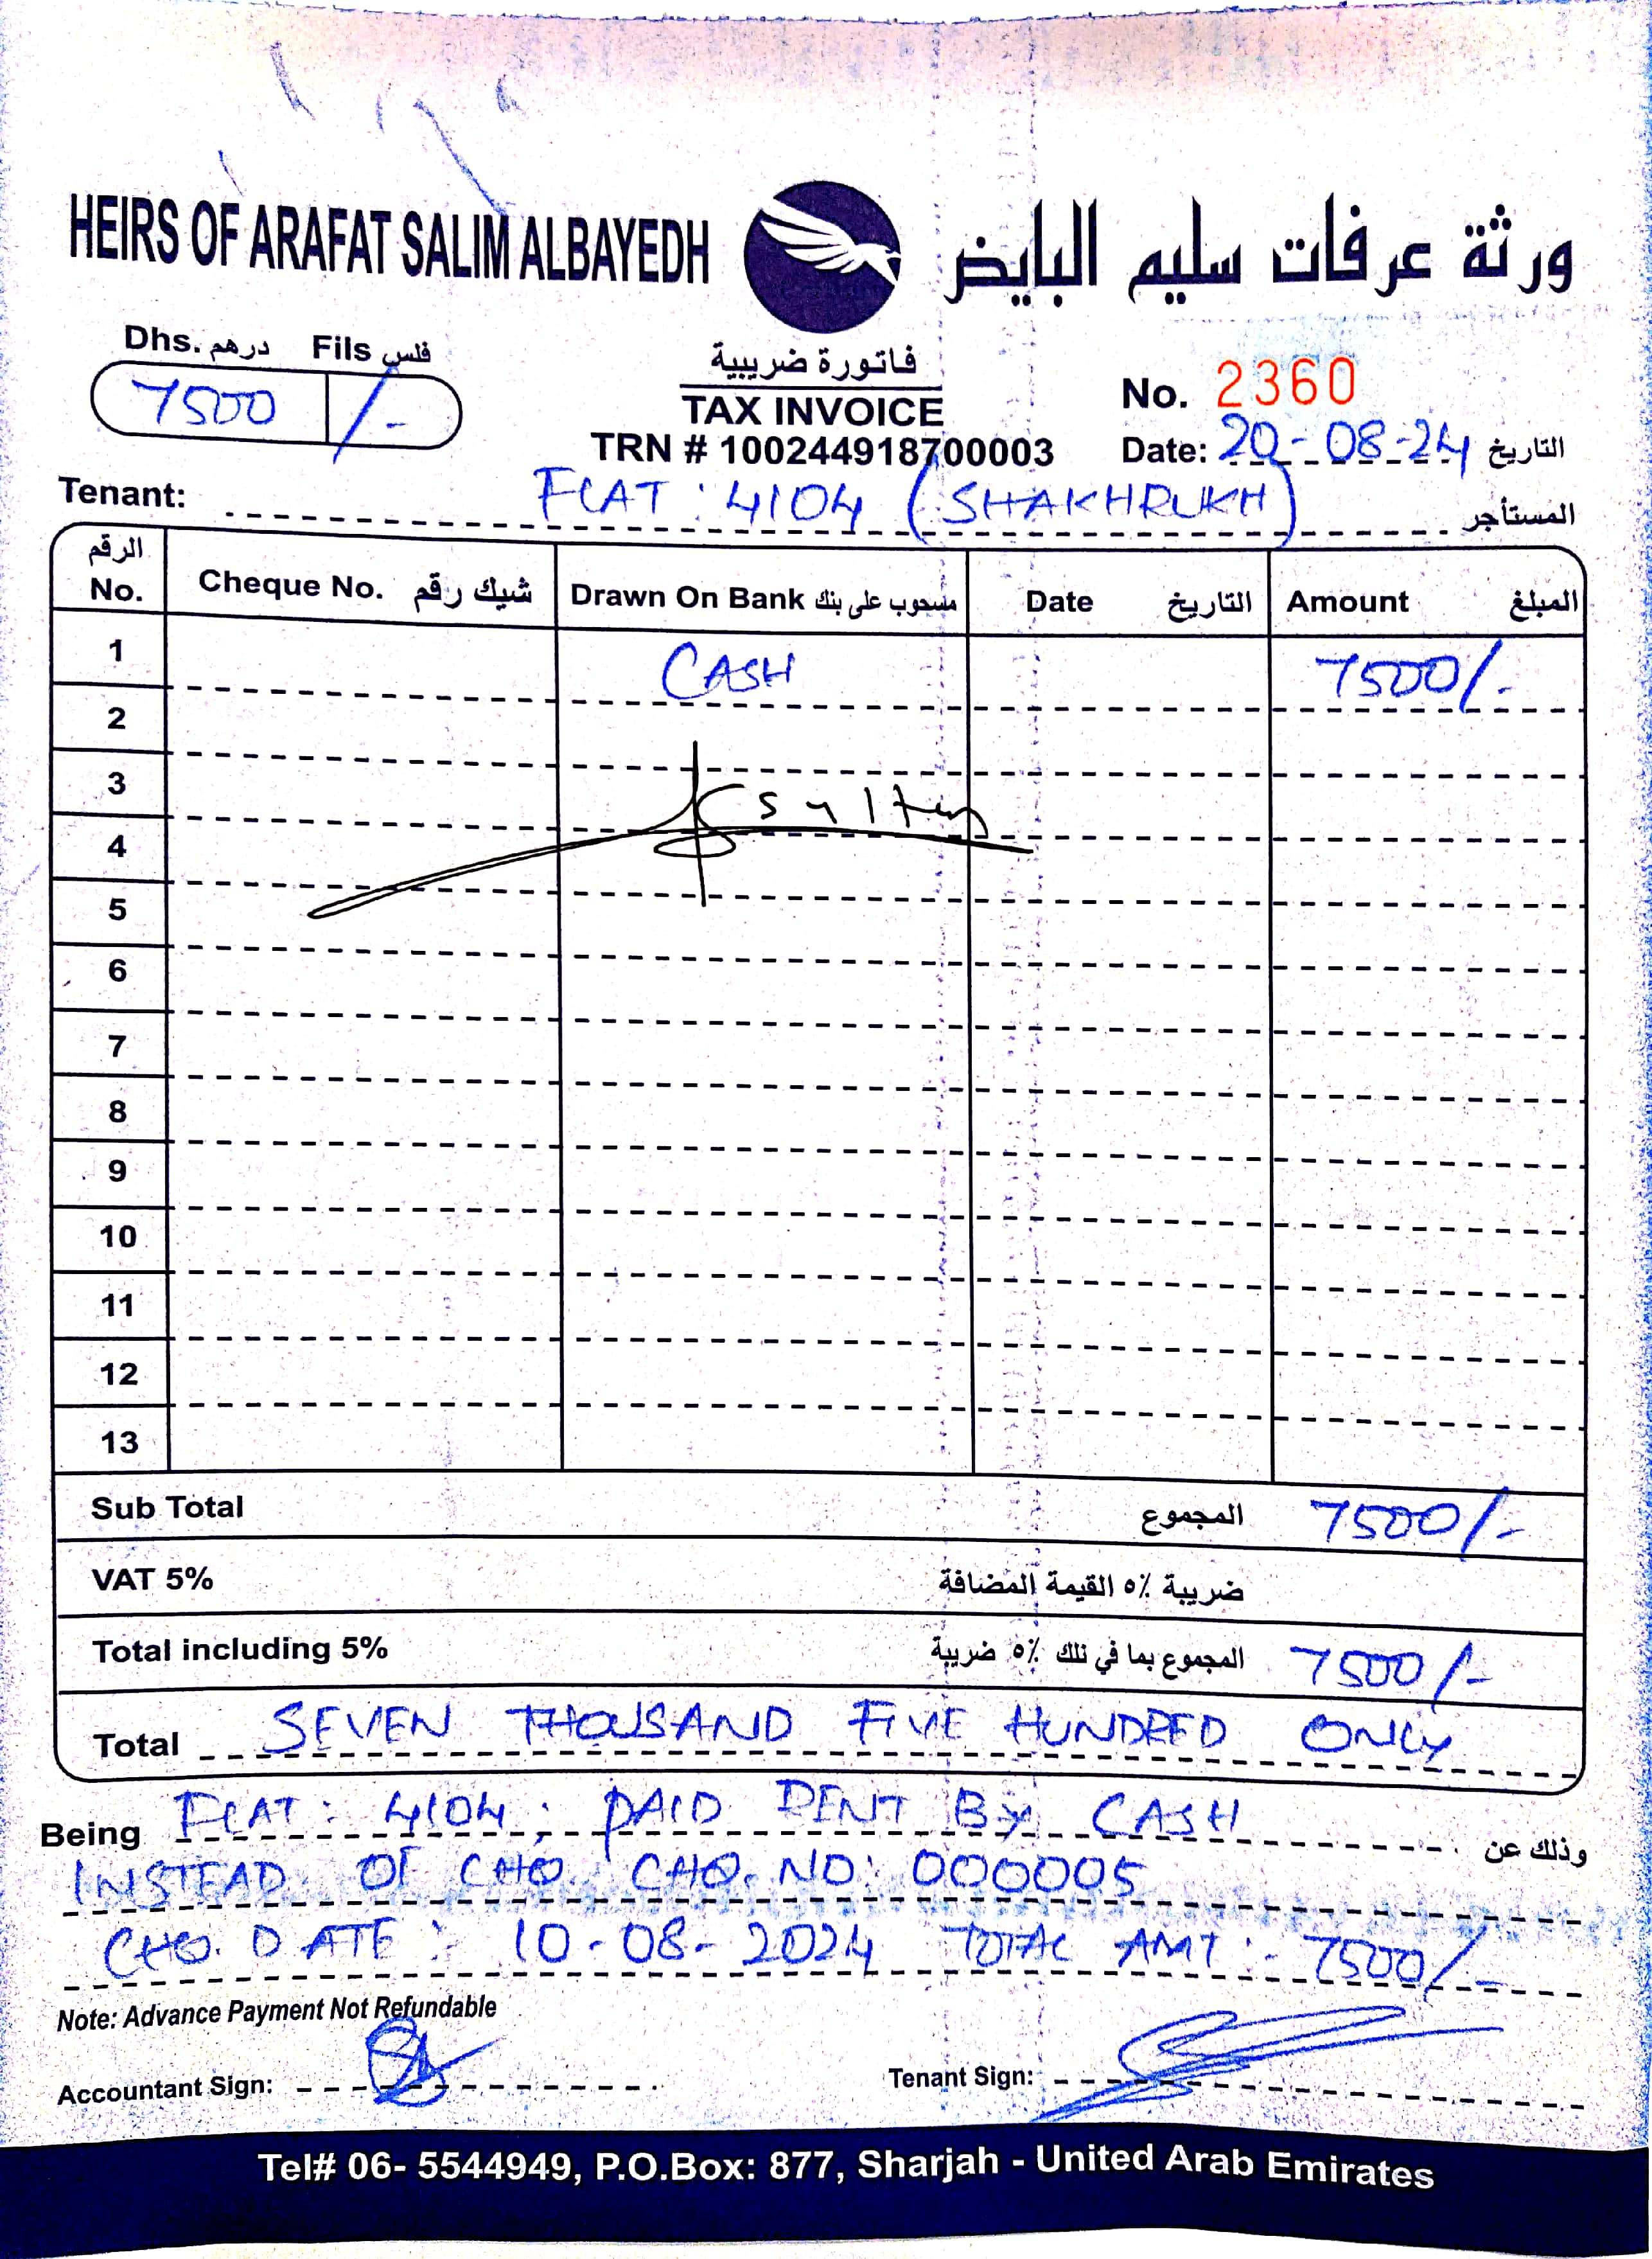 HEIRS OF ARAFAT SALIM ALBAYEDH ورثة عرفات سليم البايض
Dhs. درهم Fils فلس
7500 /-
فاتورة ضريبية
TAX INVOICE
TRN # 100244918700003
No. 2360
Date: 20-08-24 التاريخ
Tenant: FLAT : 4104 (SHAKHRUKH) المستأجر
الرقم No. Cheque No. شيك رقم Drawn On Bank مسحوب على بنك Date التاريخ Amount المبلغ
1 CASH 7500/-
2
3
4
5
6
7
8
9
10
11
12
13
Sub Total المجموع 7500/-
VAT 5% ضريبة ٥٪ القيمة المضافة
Total including 5% المجموع بما في ذلك ٥٪ ضريبة 7500/-
Total SEVEN THOUSAND FIVE HUNDRED ONLY
Being FLAT : 4104 ; PAID RENT BY CASH وذلك عن
INSTEAD OF CHQ. CHQ. NO: 000005
CHQ. DATE : 10-08-2024 TOTAL AMT :- 7500/-
Note: Advance Payment Not Refundable
Accountant Sign: Tenant Sign:
Tel# 06- 5544949, P.O.Box: 877, Sharjah - United Arab Emirates